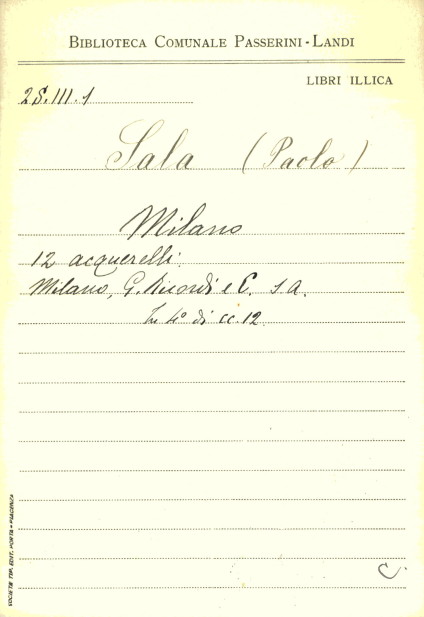 BIBLIOTECA COMUNALE PASSERINI-LANDI
LIBRI ILLICA
2S.III.1
Sala (Paolo)
Milano
12 acquerelli.
Milano, G. Ricordi e C. s.a.
In 4° di cc. 12.
SOCIETÀ TIP. EDIT. PORTA - PIACENZA
C.